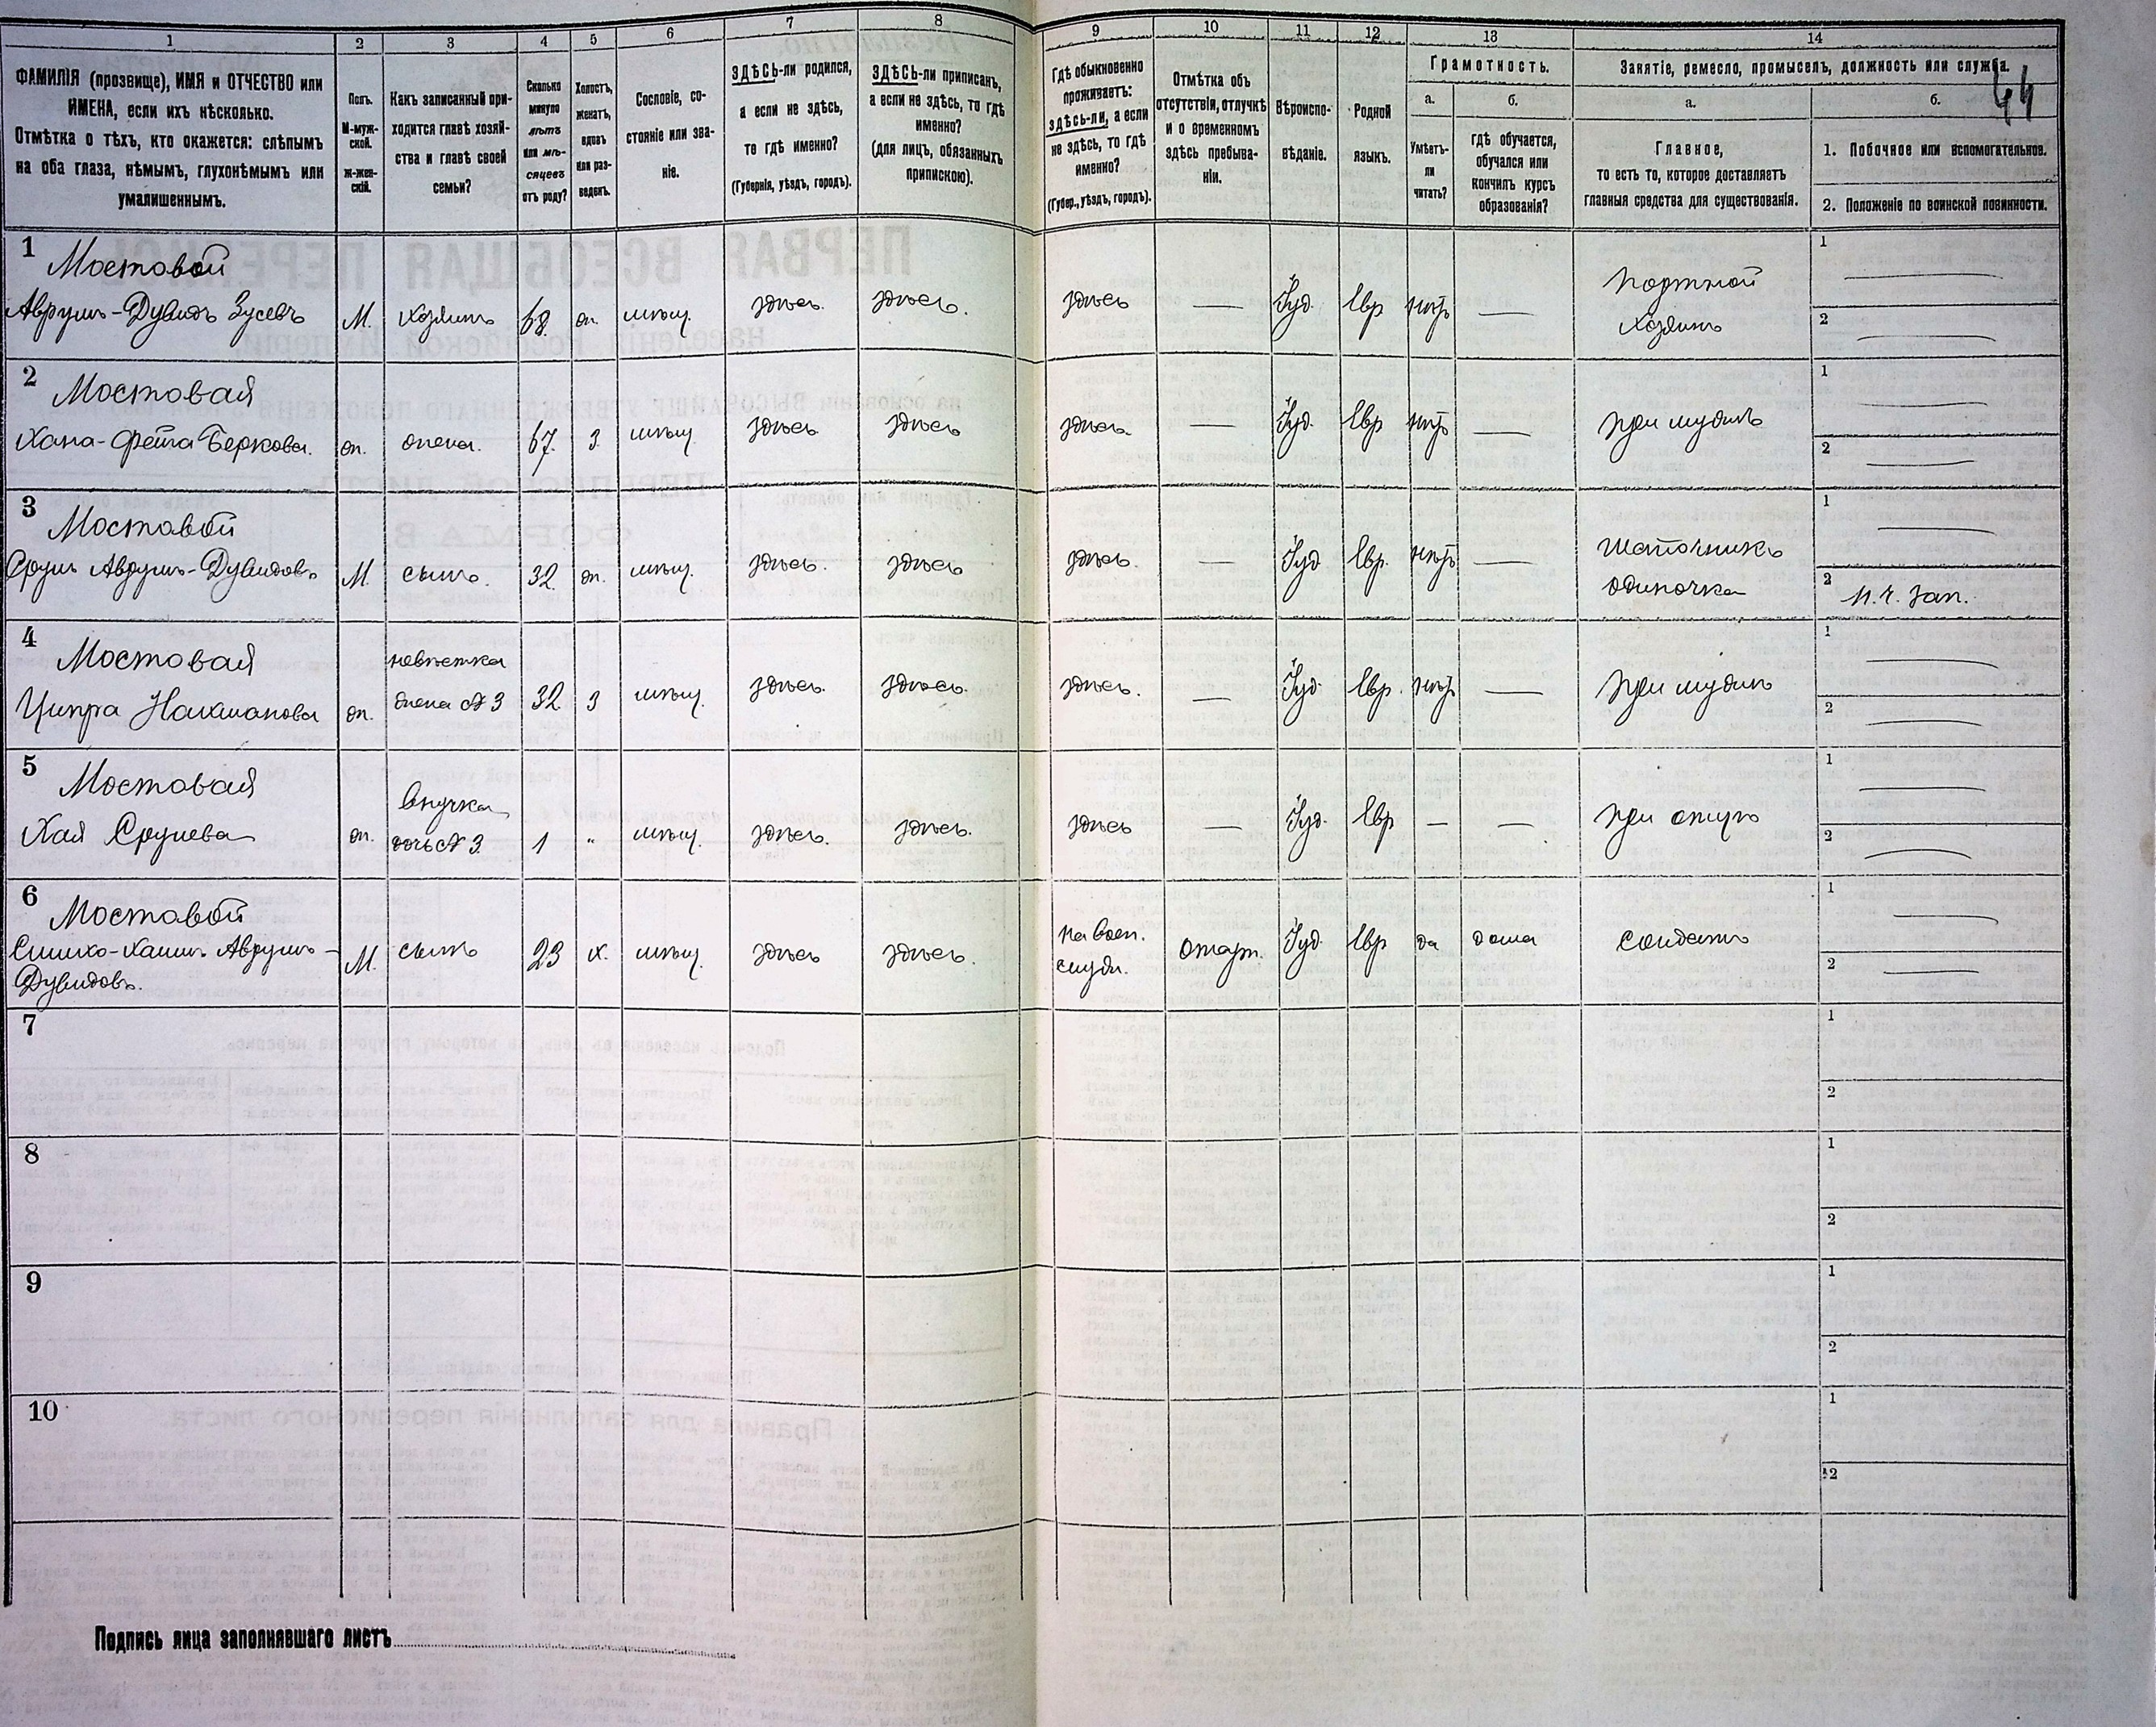 1 2 3 4 5 6 7 8 9 10 11 12 13 14
44
ФАМИЛІЯ (прозвище), ИМЯ и ОТЧЕСТВО или
ИМЕНА, если ихъ нѣсколько.
Отмѣтка о тѣхъ, кто окажется: слѣпымъ
на оба глаза, нѣмымъ, глухонѣмымъ или
умалишеннымъ.
Полъ.
М-муж-
ской.
ж-жен-
скій.
Какъ записанный при-
ходится главѣ хозяй-
ства и главѣ своей
семьи?
Сколько
минуло
лѣтъ
или мѣ-
сяцевъ
отъ роду?
Холостъ,
женатъ,
вдовъ
или раз-
веденъ.
Сословіе, со-
стояніе или зва-
ніе.
ЗДѢСЬ-ли родился,
а если не здѣсь,
то гдѣ именно?
(Губернія, уѣздъ, городъ).
ЗДѢСЬ-ли приписанъ,
а если не здѣсь, то гдѣ
именно?
(для лицъ, обязанныхъ
припискою).
Гдѣ обыкновенно
проживаетъ:
здѣсь-ли, а если
не здѣсь, то гдѣ
именно?
(Губер., уѣздъ, городъ).
Отмѣтка объ
отсутствіи, отлучкѣ
и о временномъ
здѣсь пребыва-
ніи.
Вѣроиспо-
вѣданіе.
Родной
языкъ.
Грамотность.
а.
Умѣетъ-
ли
читать?
б.
гдѣ обучается,
обучался или
кончилъ курсъ
образованія?
Занятіе, ремесло, промыселъ, должность или служба.
а.
Главное,
то есть то, которое доставляетъ
главныя средства для существованія.
б.
1. Побочное или вспомогательное.
2. Положеніе по воинской повинности.
1 Мостовой
Аврумъ-Дувидъ Зусевъ М. хозяинъ 68. жн. мѣщ. здѣсь. здѣсь. здѣсь — Іуд. Евр нѣтъ — Портной
хозяинъ
1 —
2 —
2 Мостовая
Хана-Фейга Беркова. жн. жена. 67. З. мѣщ. здѣсь здѣсь здѣсь. — Іуд. Евр нѣтъ — при мужѣ
1 —
2 —
3 Мостовой
Срулъ Аврумъ-Дувидовъ М. сынъ. 32. жн. мѣщ. здѣсь. здѣсь здѣсь. — Іуд Евр. нѣтъ — Шапочникъ
одиночка
1 —
2 н. ч. зап.
4 Мостовая
Ципра Нахманова жн. невѣстка
жена № 3 32 З мѣщ. здѣсь. здѣсь. здѣсь. — Іуд. Евр. нѣтъ — при мужѣ
1 —
2 —
5 Мостовая
Хая Срулева жн. внучка
дочь № 3. 1 " мѣщ. здѣсь. здѣсь. здѣсь — Іуд. Евр — — при отцѣ
1 —
2 —
6 Мостовой
Симхо-Хаимъ Аврумъ-
Дувидовъ. М. сынъ 23 х. мѣщ. здѣсь здѣсь. на воен.
служ. Іуд. Евр да дома солдатъ
1 —
2 —
7
1
2
8
1
2
9
1
2
10
1
2
Подпись лица заполнявшаго листъ